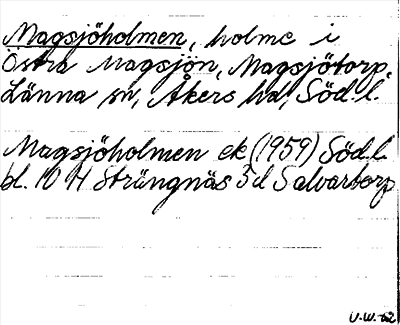 Magsjöholmen, holme i
Östra Magsjön, Magsjötorp,
Länna sn, Åkers hd, Söd. l.
Magsjöholmen ek (1959) Söd. l.
bl. 10 H Strängnäs 5 d Salvartorp
U.W.-62